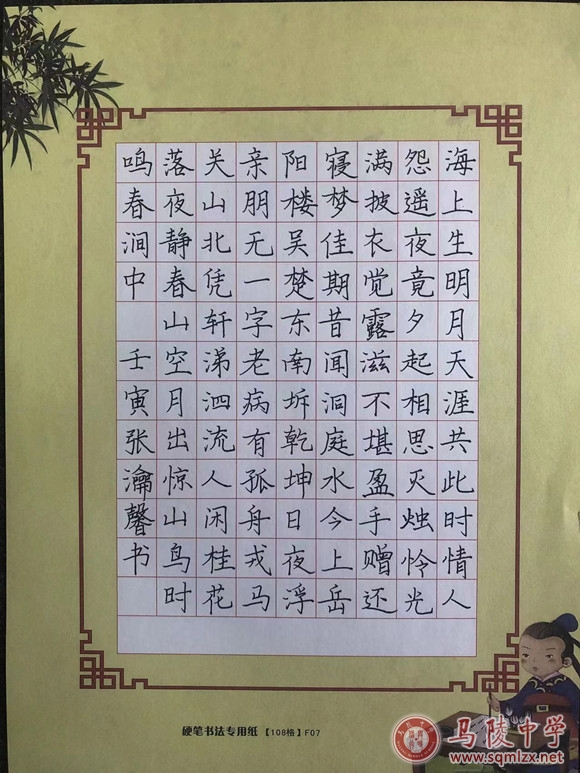 海上生明月天涯共此时情人
怨遥夜竟夕起相思灭烛怜光
满披衣觉露滋不堪盈手赠还
寝梦佳期昔闻洞庭水今上岳
阳楼吴楚东南坼乾坤日夜浮
亲朋无一字老病有孤舟戎马
关山北凭轩涕泗流人闲桂花
落夜静春山空月出惊山鸟时
鸣春涧中 壬寅张瀹馨书
硬笔书法专用纸【108格】F07
马陵中学
www.sqmlzx.net